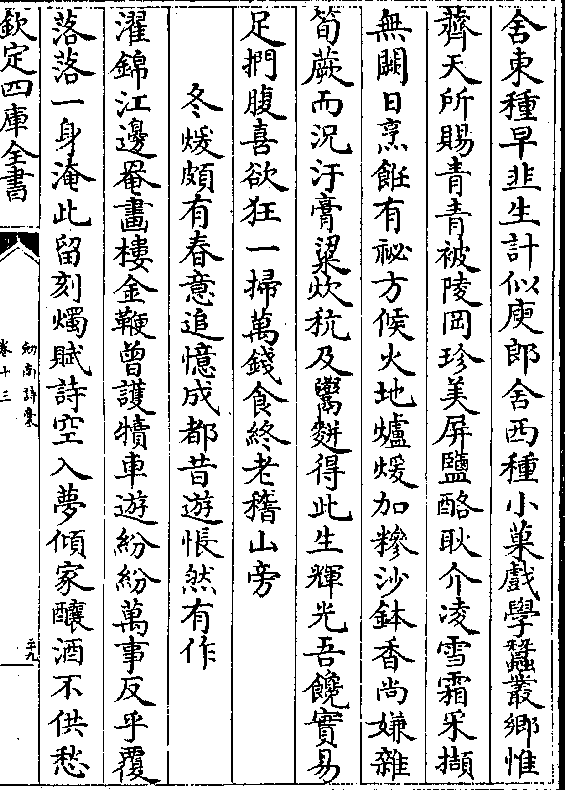 舍東種早韭生計似庾郎舍西種小菓戲學蠶叢鄉惟
薺天所賜青青被陵岡珍美屏鹽酪耿介凌雪霜采擷
無闕日烹飪有祕方候火地爐煖加糝沙鉢香尚嫌雜
筍蕨而況汙膏粱炊秔及鬻䴵得此生輝光吾饞實易
足捫腹喜欲狂一掃萬錢食終老稽山旁
冬煖頗有春意追憶成都昔遊悵然有作
濯錦江邊罨畫樓金鞭曾護犢車遊紛紛萬事反乎覆
落落一身淹此留刻燭賦詩空入夢傾家釀酒不供愁
欽定四庫全書
劍南詩槀
卷十三